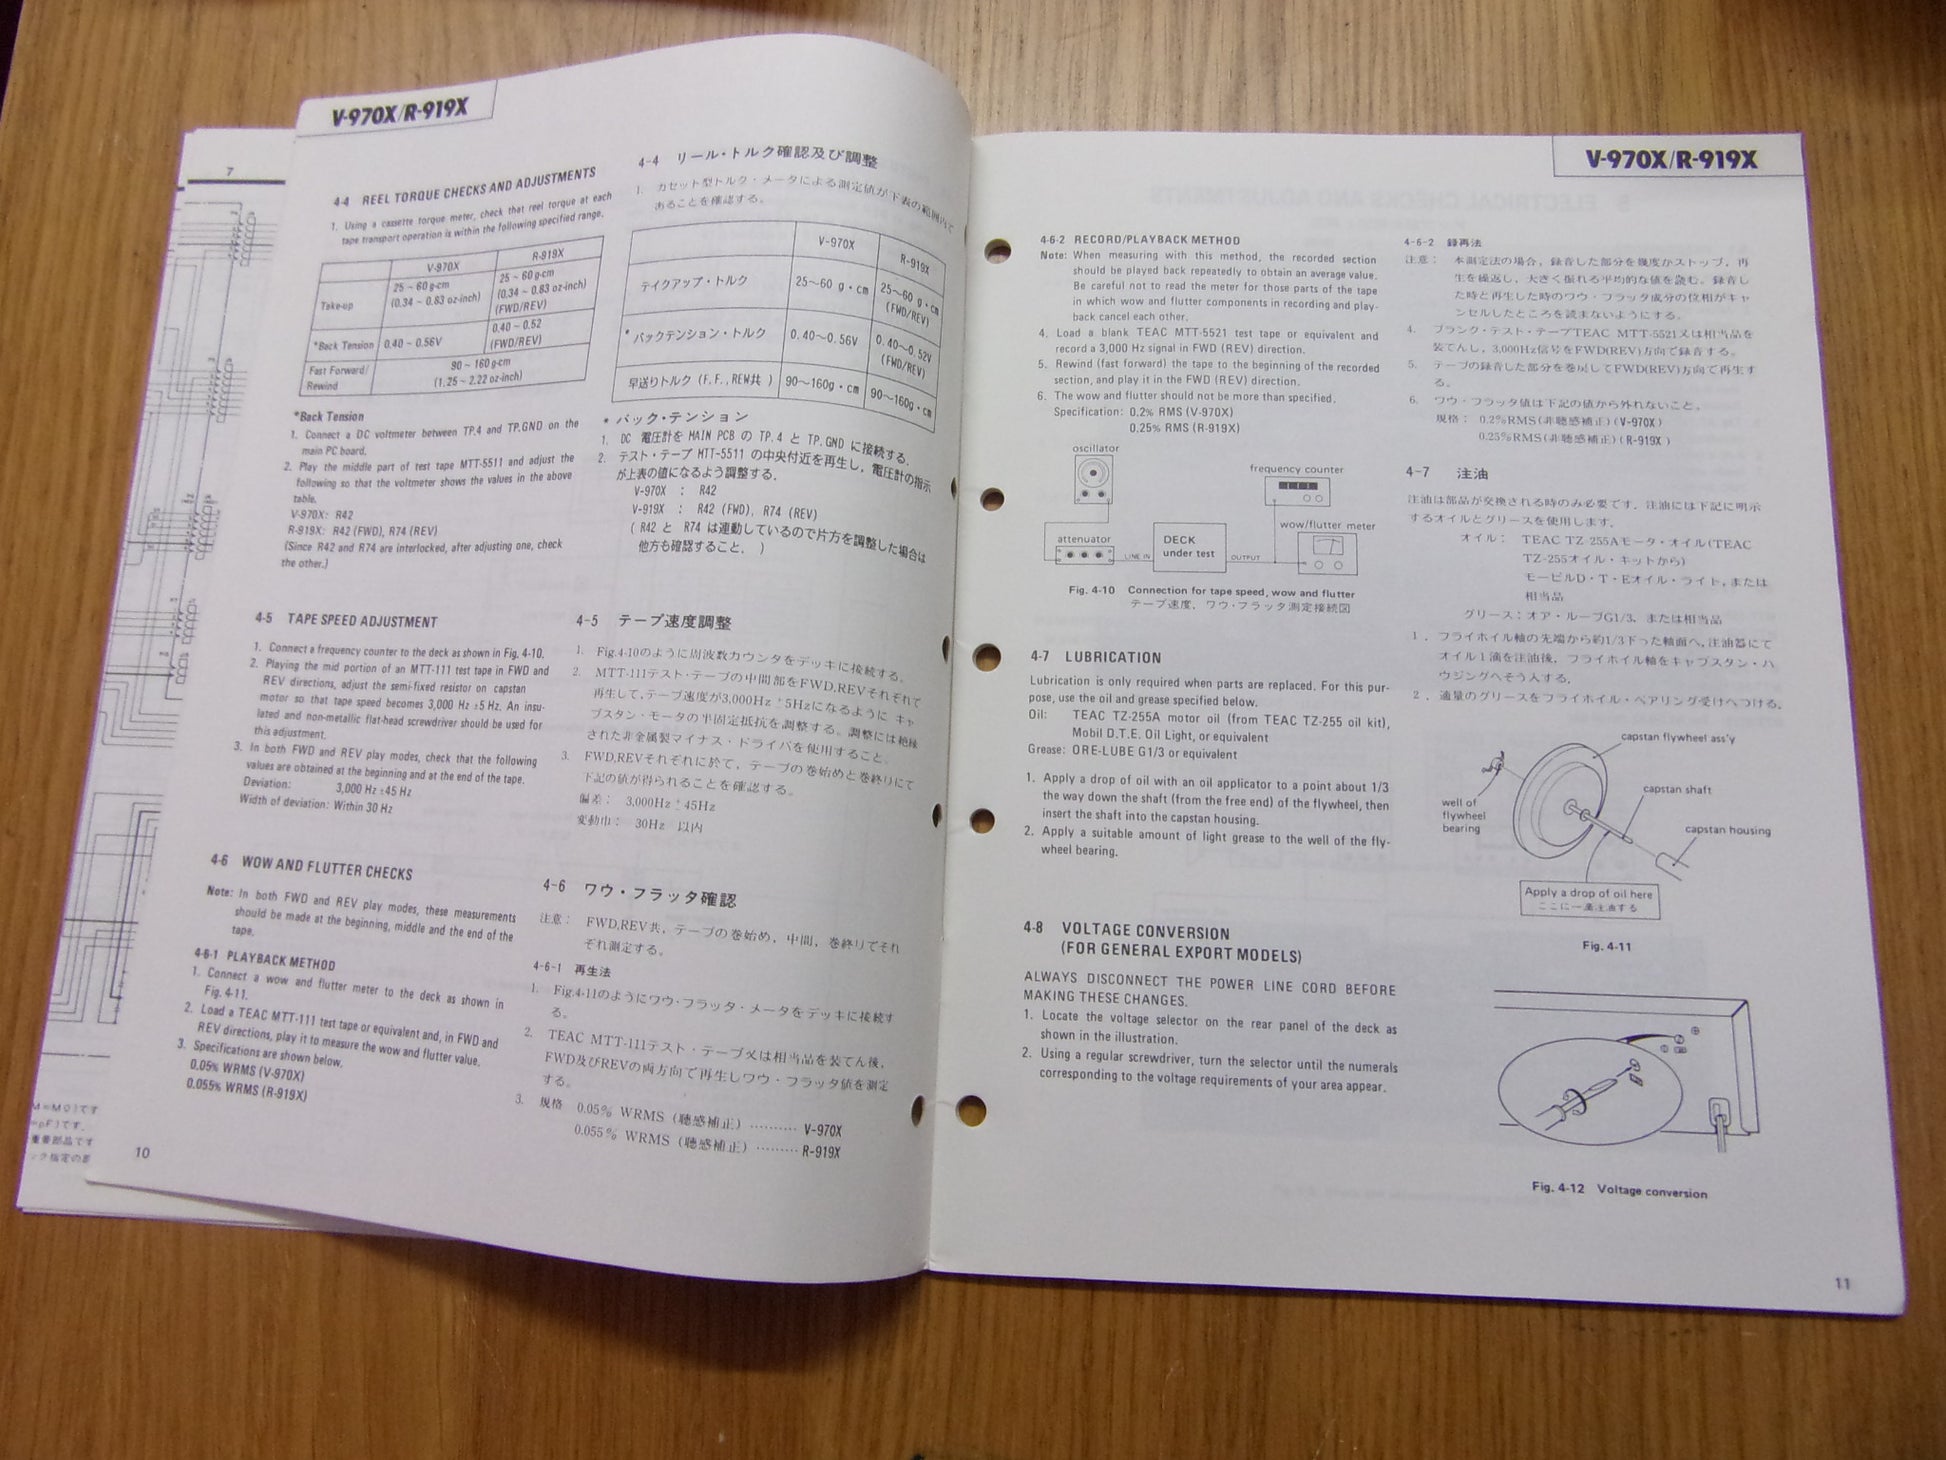 7
M=MΩ)です
=pF)です.
重要部品です
ック指定の差
V-970X/R-919X
4-4 REEL TORQUE CHECKS AND ADJUSTMENTS
1. Using a cassette torque meter, check that reel torque at each
tape transport operation is within the following specified range.
V-970X R-919X
Take-up 25 ~ 60 g-cm (0.34 ~ 0.83 oz-inch) 25 ~ 60 g-cm (0.34 ~ 0.83 oz-inch) (FWD/REV)
*Back Tension 0.40 ~ 0.56V 0.40 ~ 0.52 (FWD/REV)
Fast Forward/ Rewind 90 ~ 160 g-cm (1.25 ~ 2.22 oz-inch)
*Back Tension
1. Connect a DC voltmeter between TP.4 and TP.GND on the
main PC board.
2. Play the middle part of test tape MTT-5511 and adjust the
following so that the voltmeter shows the values in the above
table.
V-970X: R42
R-919X: R42 (FWD), R74 (REV)
(Since R42 and R74 are interlocked, after adjusting one, check
the other.)
4-5 TAPE SPEED ADJUSTMENT
1. Connect a frequency counter to the deck as shown in Fig. 4-10.
2. Playing the mid portion of an MTT-111 test tape in FWD and
REV directions, adjust the semi-fixed resistor on capstan
motor so that tape speed becomes 3,000 Hz ±5 Hz. An insu-
lated and non-metallic flat-head screwdriver should be used for
this adjustment.
3. In both FWD and REV play modes, check that the following
values are obtained at the beginning and at the end of the tape.
Deviation: 3,000 Hz ±45 Hz
Width of deviation: Within 30 Hz
4-6 WOW AND FLUTTER CHECKS
Note: In both FWD and REV play modes, these measurements
should be made at the beginning, middle and the end of the
tape.
4-6-1 PLAYBACK METHOD
1. Connect a wow and flutter meter to the deck as shown in
Fig. 4-11.
2. Load a TEAC MTT-111 test tape or equivalent and, in FWD and
REV directions, play it to measure the wow and flutter value.
3. Specifications are shown below.
0.05% WRMS (V-970X)
0.055% WRMS (R-919X)
10
4-4 リール・トルク確認及び調整
1. カセット型トルク・メータによる測定値が下表の範囲内で
あることを確認する。
V-970X R-919X
テイクアップ・トルク 25〜60 g・cm 25〜60 g・cm (FWD/REV)
*バックテンション・トルク 0.40〜0.56V 0.40〜0.52V (FWD/REV)
早送りトルク (F.F.,REW共 ) 90〜160g・cm 90〜160g・cm
* バック・テンション
1. DC 電圧計を MAIN PCB の TP.4 と TP.GND に接続する.
2. テスト・テープ MTT-5511 の中央付近を再生し, 電圧計の指示
が上表の値になるよう調整する.
V-970X : R42
V-919X : R42 (FWD), R74 (REV)
( R42 と R74 は連動しているので片方を調整した場合は
他方も確認すること. )
4-5 テープ速度調整
1. Fig.4-10のように周波数カウンタをデッキに接続する。
2. MTT-111テスト・テープの中間部をFWD,REVそれぞれで
再生して,テープ速度が3,000Hz ±5Hzになるように キャ
プスタン・モータの半固定抵抗を調整する。調整には絶縁
された非金属製マイナス・ドライバを使用すること。
3. FWD,REVそれぞれに於て, テープの巻始めと巻終りにて
下記の値が得られることを確認する。
偏差: 3,000Hz ±45Hz
変動巾: 30Hz 以内
4-6 ワウ・フラッタ確認
注意: FWD,REV共, テープの巻始め, 中間, 巻終りでそれ
ぞれ測定する。
4-6-1 再生法
1. Fig.4-11のようにワウ・フラッタ・メータをデッキに接続す
る。
2. TEAC MTT-111テスト・テープ又は相当品を装てん後,
FWD及びREVの両方向で再生しワウ・フラッタ値を測定
する。
3. 規格 0.05% WRMS (聴感補正) ·········· V-970X
0.055% WRMS (聴感補正) ········· R-919X
V-970X/R-919X
4-6-2 RECORD/PLAYBACK METHOD
Note: When measuring with this method, the recorded section
should be played back repeatedly to obtain an average value.
Be careful not to read the meter for those parts of the tape
in which wow and flutter components in recording and play-
back cancel each other.
4. Load a blank TEAC MTT-5521 test tape or equivalent and
record a 3,000 Hz signal in FWD (REV) direction.
5. Rewind (fast forward) the tape to the beginning of the recorded
section, and play it in the FWD (REV) direction.
6. The wow and flutter should not be more than specified.
Specification: 0.2% RMS (V-970X)
0.25% RMS (R-919X)
oscillator
frequency counter
wow/flutter meter
attenuator
LINE IN
DECK
under test
OUTPUT
Fig. 4-10 Connection for tape speed, wow and flutter
テープ速度, ワウ・フラッタ測定接続図
4-7 LUBRICATION
Lubrication is only required when parts are replaced. For this pur-
pose, use the oil and grease specified below.
Oil: TEAC TZ-255A motor oil (from TEAC TZ-255 oil kit),
Mobil D.T.E. Oil Light, or equivalent
Grease: ORE-LUBE G1/3 or equivalent
1. Apply a drop of oil with an oil applicator to a point about 1/3
the way down the shaft (from the free end) of the flywheel, then
insert the shaft into the capstan housing.
2. Apply a suitable amount of light grease to the well of the fly-
wheel bearing.
4-8 VOLTAGE CONVERSION
(FOR GENERAL EXPORT MODELS)
ALWAYS DISCONNECT THE POWER LINE CORD BEFORE
MAKING THESE CHANGES.
1. Locate the voltage selector on the rear panel of the deck as
shown in the illustration.
2. Using a regular screwdriver, turn the selector until the numerals
corresponding to the voltage requirements of your area appear.
4-6-2 録再法
注意: 本測定法の場合, 録音した部分を幾度かストップ, 再
生を繰返し, 大きく振れる平均的な値を読む。録音し
た時と再生した時のワウ・フラッタ成分の位相がキャ
ンセルしたところを読まないようにする。
4. ブランク・テスト・テープTEAC MTT-5521又は相当品を
装てんし, 3,000Hz信号をFWD(REV)方向で録音する。
5. テープの録音した部分を巻戻してFWD(REV)方向で再生す
る。
6. ワウ・フラッタ値は下記の値から外れないこと。
規格: 0.2%RMS(非聴感補正)(V-970X)
0.25%RMS(非聴感補正)(R-919X)
4-7 注油
注油は部品が交換される時のみ必要です. 注油には下記に明示
するオイルとグリースを使用します.
オイル: TEAC TZ-255Aモータ・オイル(TEAC
TZ-255オイル・キットから)
モービルD・T・Eオイル・ライト, または
相当品
グリース: オア・ルーブG1/3, または相当品
1. フライホイル軸の先端から約1/3下った軸面へ, 注油器にて
オイル1滴を注油後, フライホイル軸をキャプスタン・ハ
ウジングへそう入する.
2. 適量のグリースをフライホイル・ベアリング受けへつける.
capstan flywheel ass'y
capstan shaft
well of
flywheel
bearing
capstan housing
Apply a drop of oil here
ここに一滴注油する
Fig. 4-11
Fig. 4-12 Voltage conversion
11